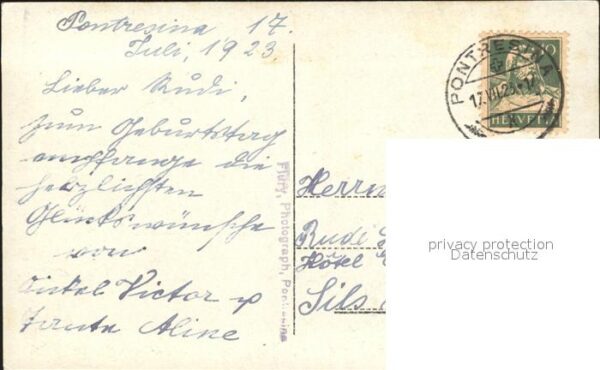 Pontresina 17.
Juli, 1923
Lieber Rudi,
zum Geburtstag
empfange die
herzlichsten
Glückswünsche
von
Onkel Victor u
Tante Aline
Flury, Photograph, Pontresina
PONTRESINA
17.VII.23
10
HELVETIA
Herrn
Rude
Hôtel
Sils
privacy protection
Datenschutz